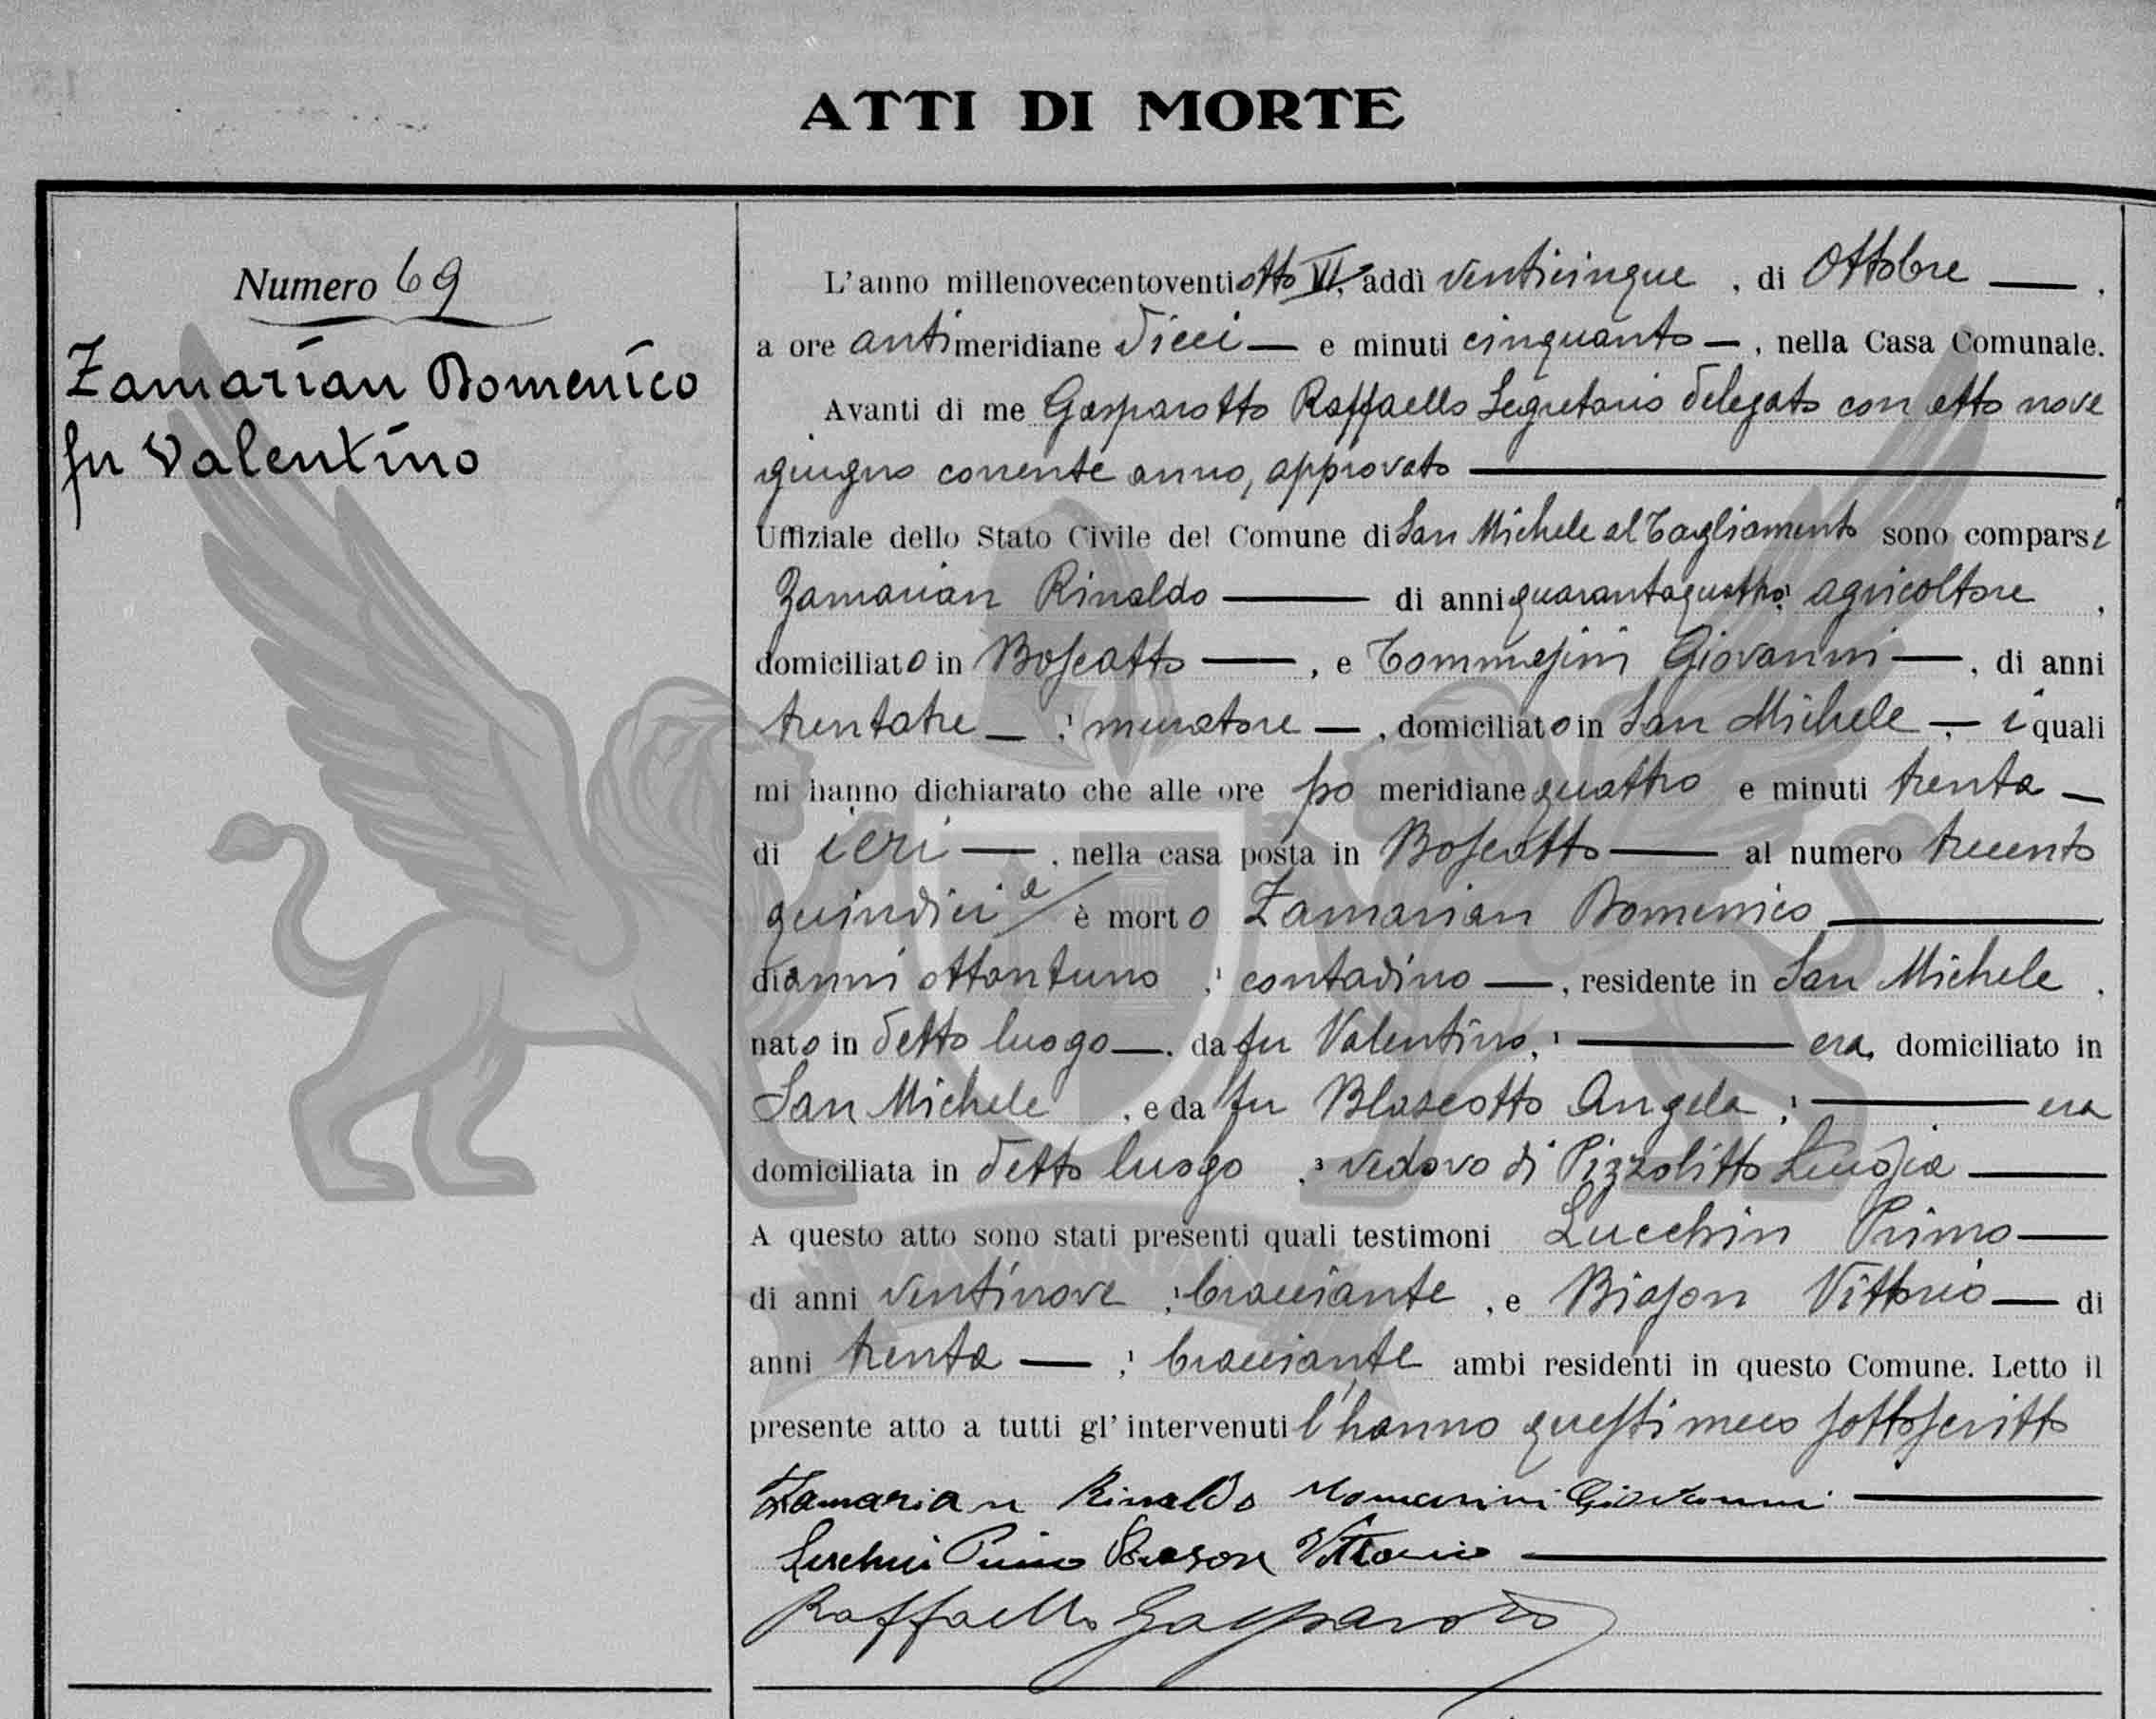 ATTI DI MORTE
Numero 69
Zamarian Domenico
fu Valentino
L'anno millenovecentoventiotto VI, addì venticinque, di Ottobre —,
a ore antimeridiane dieci — e minuti cinquanta —, nella Casa Comunale.
Avanti di me Gasparotto Raffaello Segretario delegato con atto nove
giugno corrente anno, approvato —
Uffiziale dello Stato Civile del Comune di San Michele al Tagliamento sono comparsi
Zamarian Rinaldo — di anni quarantaquattro, agricoltore,
domiciliato in Boscatto —, e Tommasini Giovanni —, di anni
trentatre —, muratore —, domiciliato in San Michele —, i quali
mi hanno dichiarato che alle ore pomeridiane quattro e minuti trenta —
di ieri —, nella casa posta in Boscatto — al numero trecento
quindici a/ è morto Zamarian Domenico —
di anni ottantuno, contadino —, residente in San Michele,
nato in detto luogo —, da fu Valentino, — era domiciliato in
San Michele, e da fu Blascotto Angela, — era
domiciliata in detto luogo, vedovo di Pizzolitto —
A questo atto sono stati presenti quali testimoni Lucchin Primo —
di anni ventinove, bracciante, e Biason Vittorio — di
anni trenta —, bracciante ambi residenti in questo Comune. Letto il
presente atto a tutti gl'intervenuti l'hanno questi meco sottoscritto
Zamarian Rinaldo Tomasini Giovanni —
Lucchin Primo Biason Vittorio —
Raffaello Gasparotto